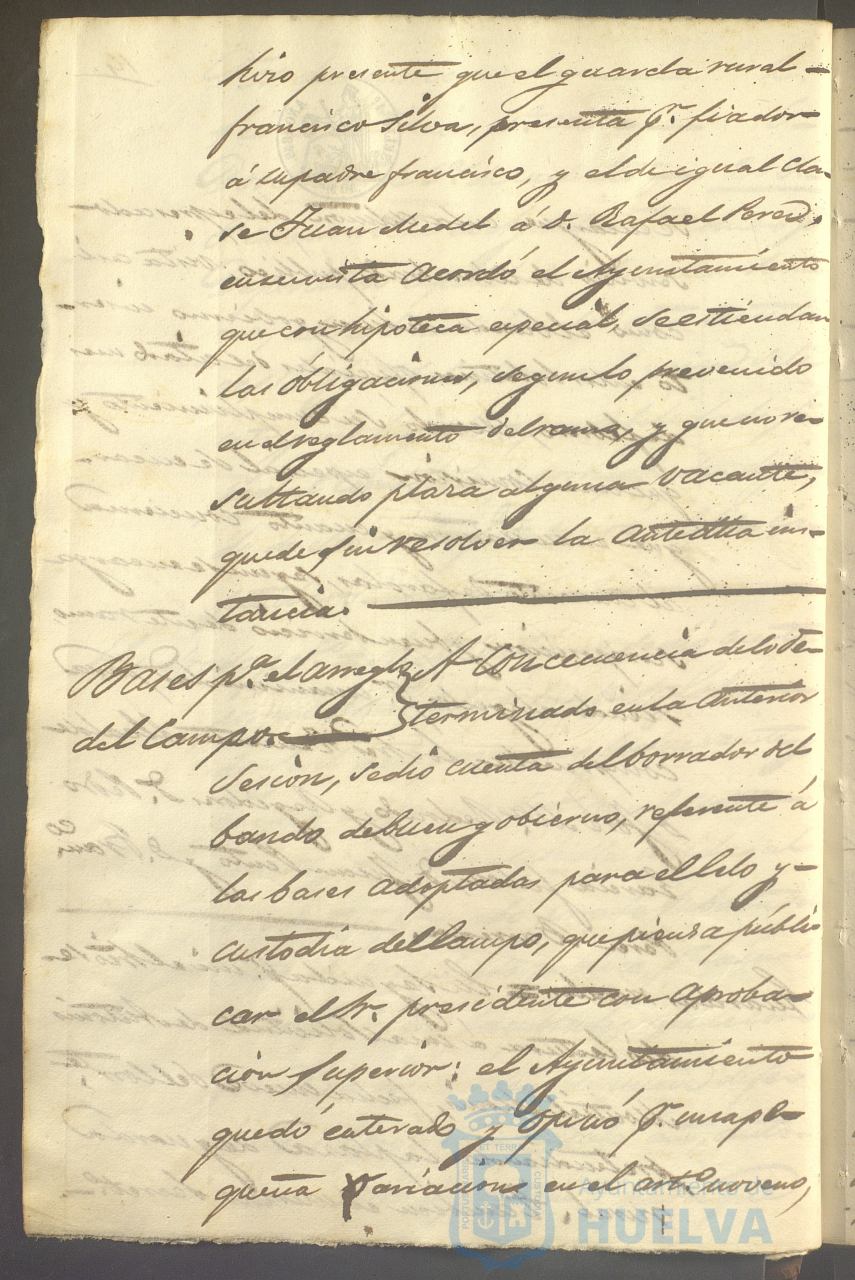 hizo presente que el guarda rural
francisco Silva, presenta pr. fiador
á su padre francisco, y el de igual cla-
se Juan Medel á D. Rafael Perez,
en su vista acordó el Ayuntamiento
que con hipoteca especial, se estiendan
las obligaciones, segun lo prevenido
en el reglamento del ramo, y que no re-
sultando plaza alguna vacante,
quede sin resolver la antedha ins-
tancia.
Bases pa. el arreglo
del Campo.
A concecuencia de lo de-
terminado en la anterior
Sesion, se dio cuenta del borrador del
bando de buen gobierno, referente á
las bases adoptadas para el Celo y
custodia del Campo, que piensa públi
car el Sr. presidente con aproba-
ción Superior: el Ayuntamiento
quedó enterado y opinó pr. una pe-
queña variacion en el arto. noveno,
Ayuntamiento de
HUELVA